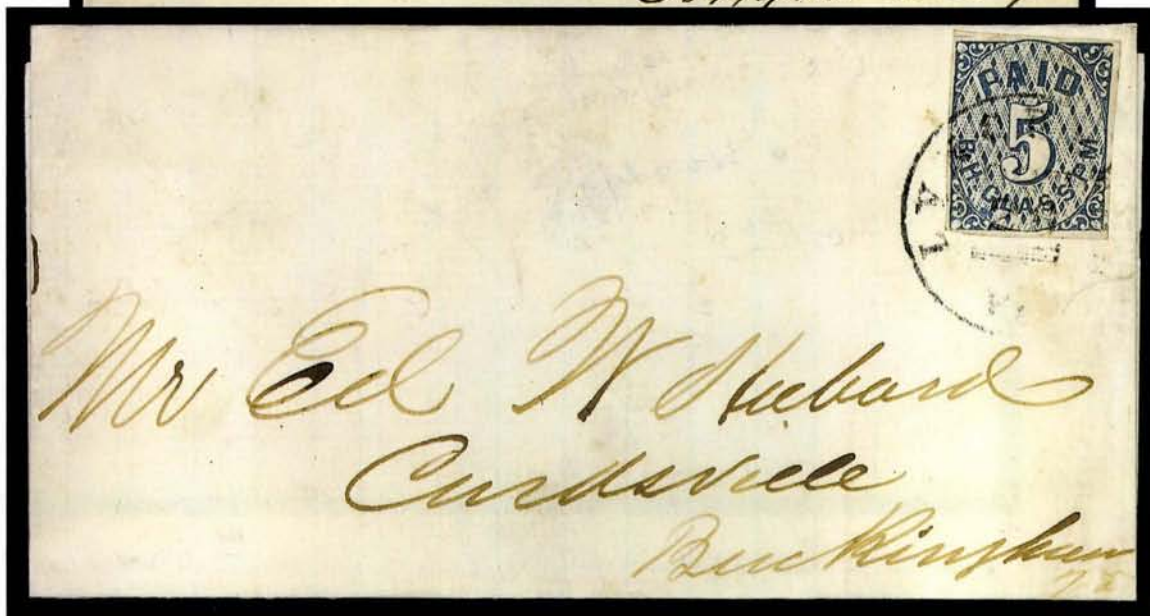 PAID
5
B.H. GLASS. P.M.
Mr Ed W Hubard
Curdsville
Buckingham